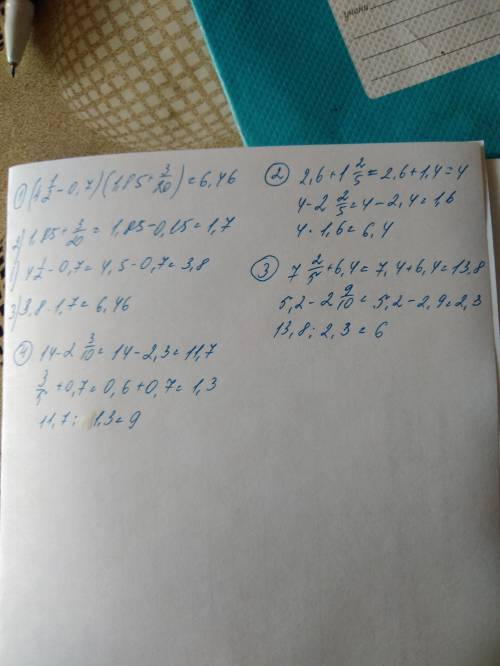 учени
1) (4 1/2 - 0,7)(1,85 + 3/20) = 6,46
2) 1,85 + 3/20 = 1,85 - 0,15 = 1,7
1) 4 1/2 - 0,7 = 4,5 - 0,7 = 3,8
3) 3,8 · 1,7 = 6,46
4) 14 - 2 3/10 = 14 - 2,3 = 11,7
3/5 + 0,7 = 0,6 + 0,7 = 1,3
11,7 : 1,3 = 9
2) 2,6 + 1 2/5 = 2,6 + 1,4 = 4
4 - 2 2/5 = 4 - 2,4 = 1,6
4 · 1,6 = 6,4
3) 7 2/5 + 6,4 = 7,4 + 6,4 = 13,8
5,2 - 2 9/10 = 5,2 - 2,9 = 2,3
13,8 : 2,3 = 6